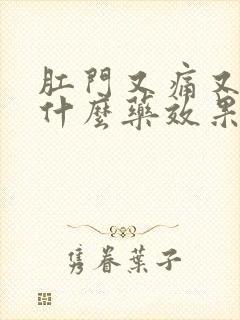 肛門又痛又
什麼藥效果
隽眷葉子